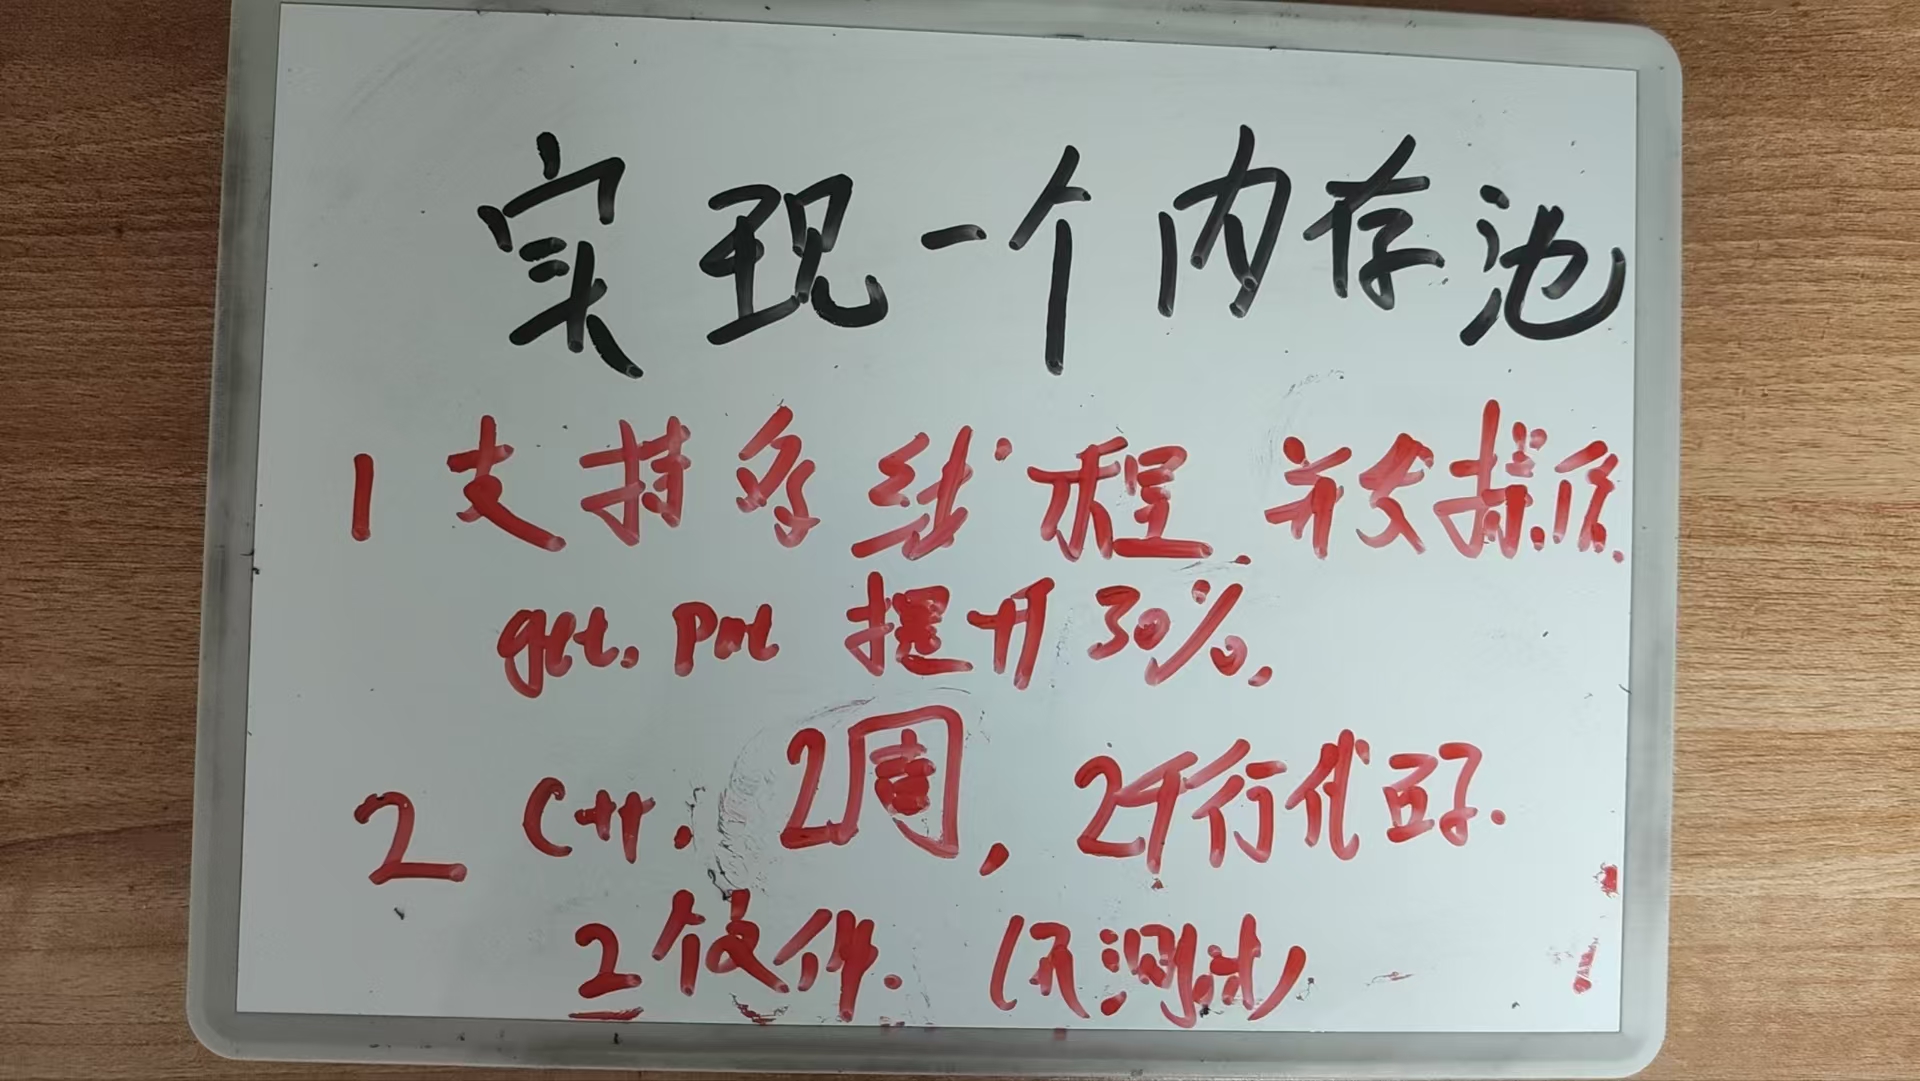 实现一个内存池
1 支持多线程,并发操作.
get. put 提升30%.
2 C++. 2周, 2千行代码.
2个文件. (含测试)